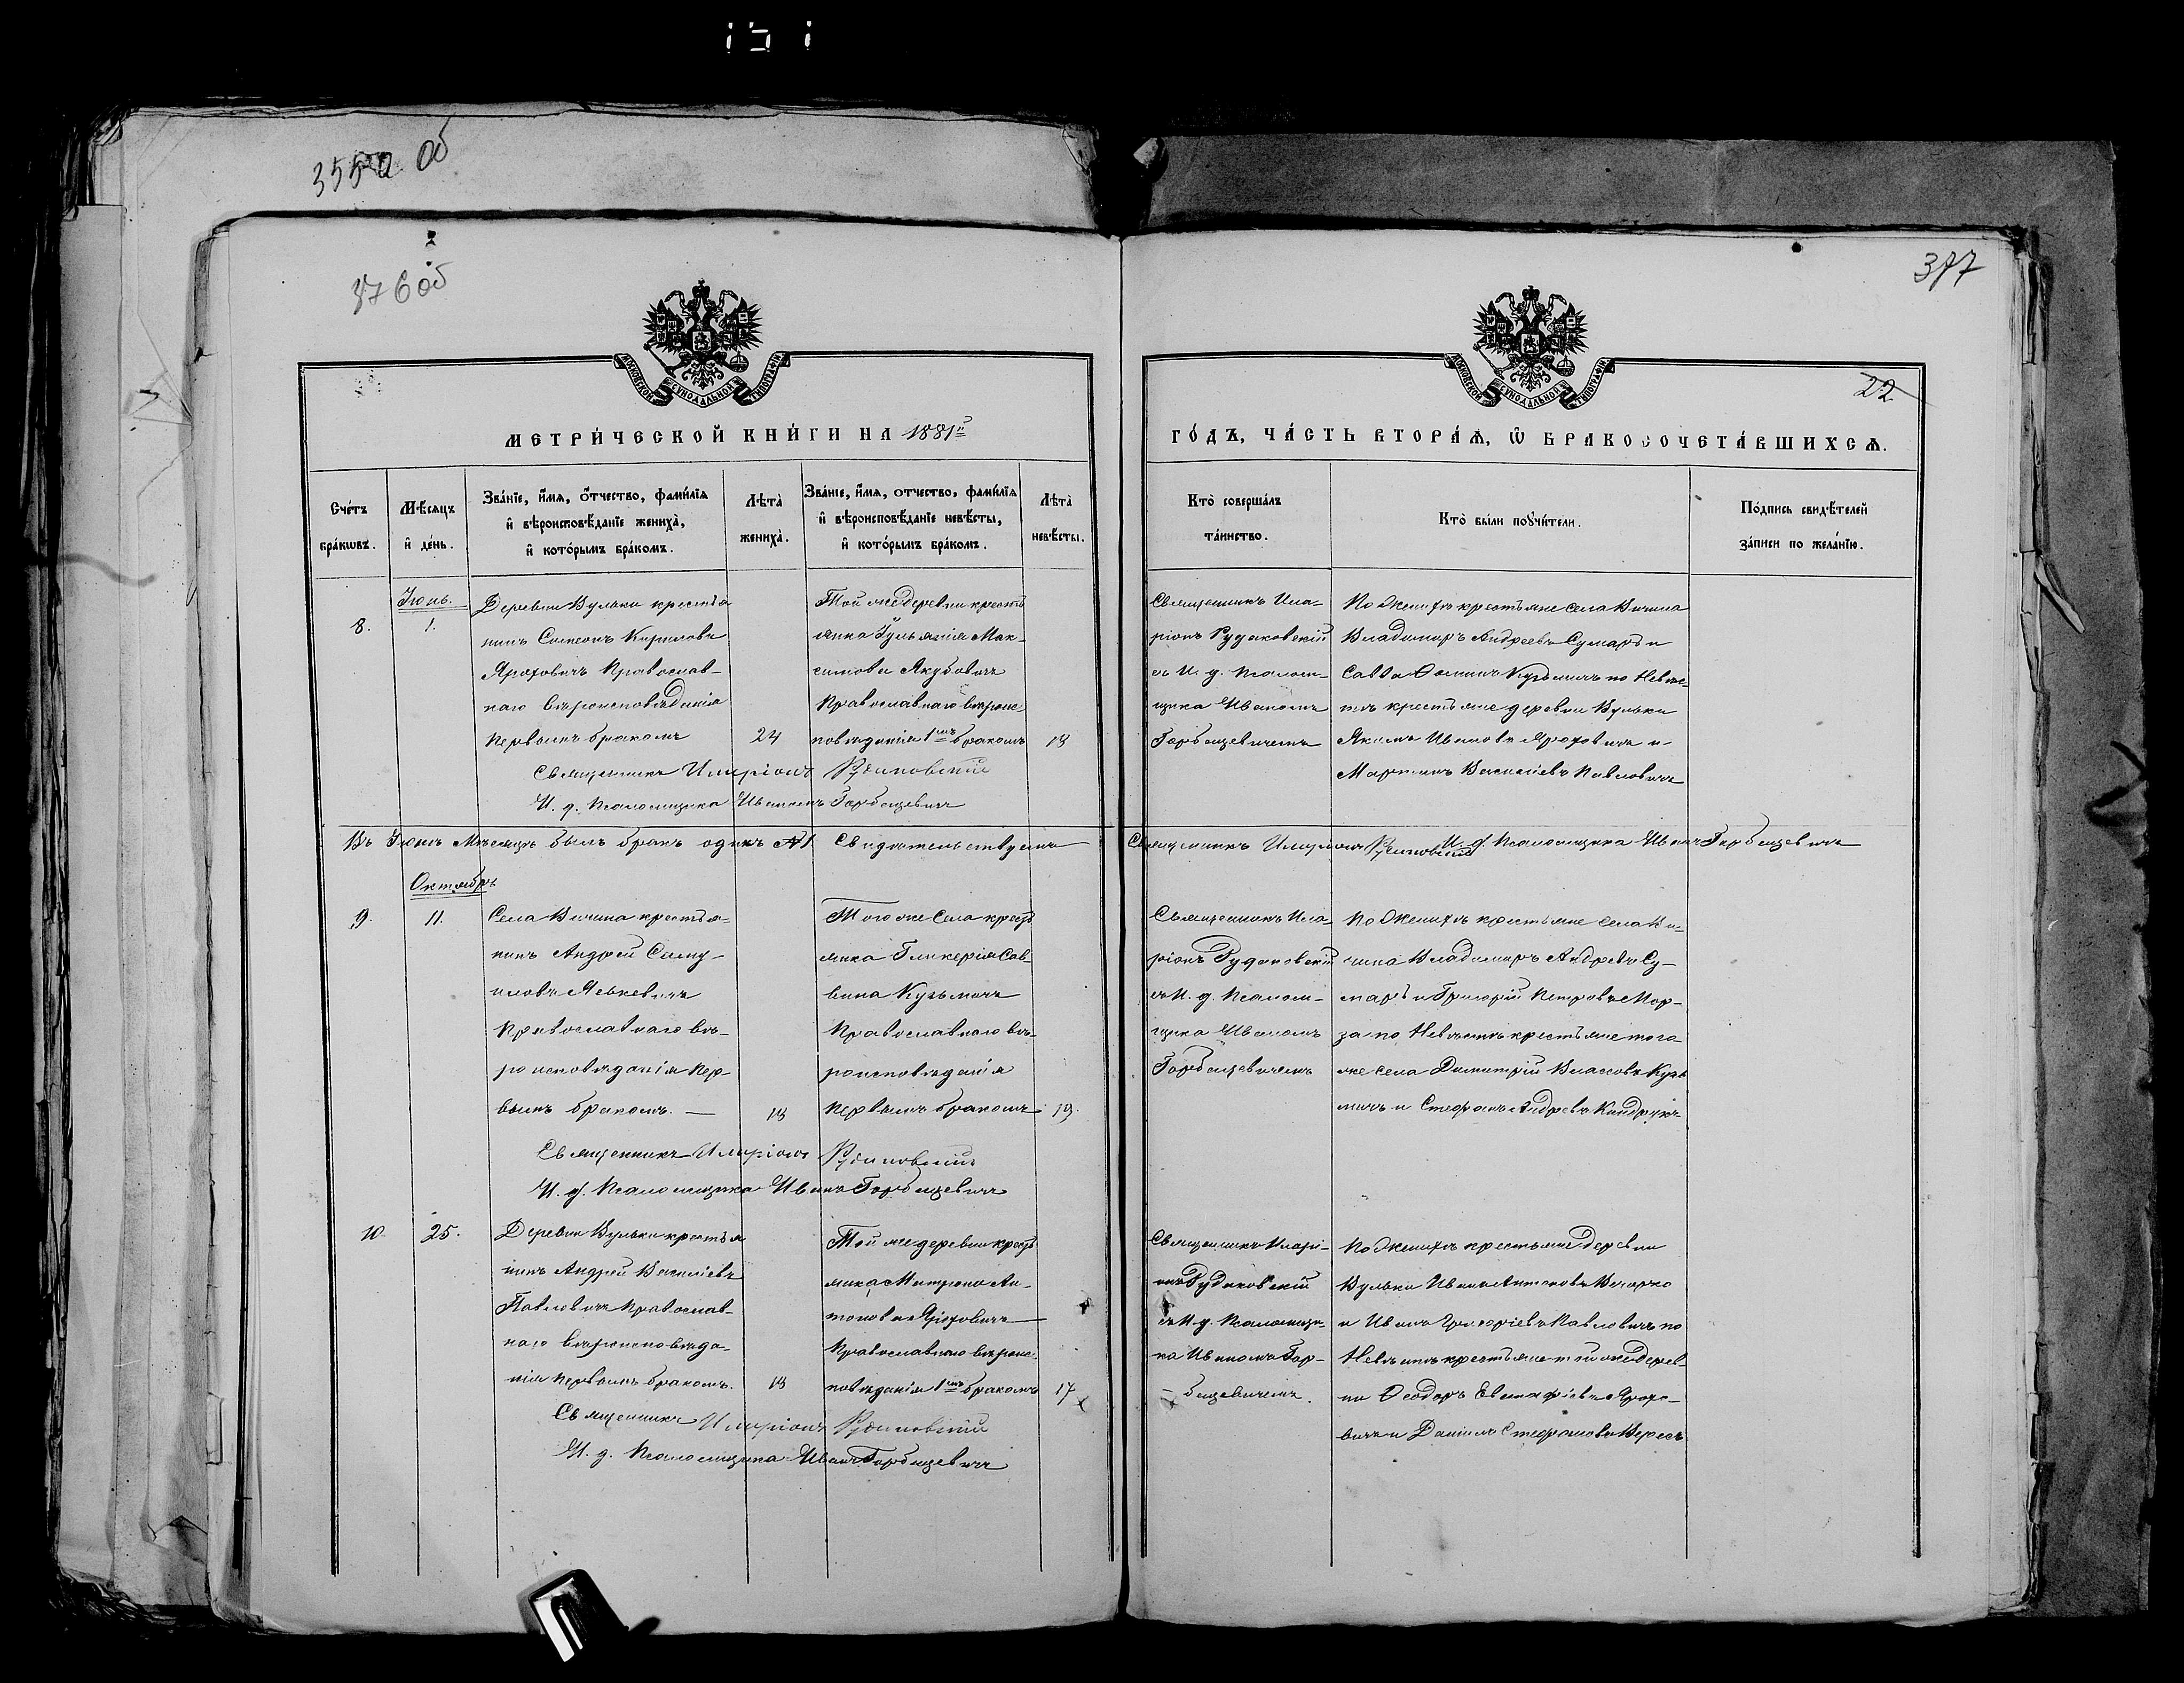 355
об
376 об
377
22
МОСКОВСКОЙ СУНОДАЛЬНОЙ ТИПОГРАФІИ
МОСКОВСКОЙ СУНОДАЛЬНОЙ ТИПОГРАФІИ
МЕТРИ́ЧЕСКОЙ КНИ́ГИ НА 1881й
ГО́ДЪ, ЧА́СТЬ ВТОРА́Ѧ, Ѽ БРАКОСОЧЕТА́ВШИХСѦ.
Сче́тъ
бра́кѡвъ.
Мѣ́сяцъ
и҆ де́нь.
Зва́нїе, и҆́мѧ, ѻ҆́тчество, фами́лїѧ
и҆ вѣроисповѣ́данїе жениха̀,
и҆ кото́рымъ бра́комъ.
Лѣ́та
жениха̀.
Зва́нїе, и҆́мѧ, отчество, фами́лїѧ
и҆ вѣроисповѣ́данїе невѣ́сты,
и҆ кото́рымъ бра́комъ.
Лѣ́та
невѣ́сты.
Кто̀ соверша́лъ
та́инство.
Кто̀ бы́ли поꙋчи́тели.
По́дпись свидѣ́телей
за́писи по жела́нїю.
8.
Іюнь.
1.
Деревни Вульки крестья
нинъ Симеонъ Кирилова
Яроховичъ Православ-
наго вѣроисповѣданія
первымъ бракомъ
24
Той же деревни кресть
янка Гульянія Мак-
симова Якубовичъ
Православнаго вѣроис
повѣданія 1мъ бракомъ
18
Священникъ Ила-
ріонъ Рудаковскій
съ И. д. Псалом-
щика Иваномъ
Горбацевичемъ
По Женихѣ крестьяне села Вичина
Владимиръ Андреевъ Сумаръ и
Савва Фоминъ Кузьмичъ по Невѣс-
тѣ крестьяне деревни Вульки
Якимъ Ивановъ Яроховичъ и
Мартинъ Василіевъ Павловичъ
Священникъ Иларіонъ Рудаковскій
И. д. Псаломщика Иваномъ Горбацевичъ
Въ Іюнѣ Мѣсяцѣ былъ бракъ одинъ №1 Свидѣтельствуемъ
Священникъ Иларіонъ Рудаковскій И. д. Псаломщика Иванъ Горбацевичъ
Октябрь
9.
11.
Села Вичина крестья-
нинъ Андрей Саму-
иловъ Левкевичъ
Православнаго вѣ-
роисповѣданія пер-
вымъ бракомъ. —
18
Того же Села кресть
янка Гликерія Сав-
вина Кузьмичъ
Православнаго вѣ-
роисповѣданія
первымъ бракомъ
19.
Священникъ Ила-
ріонъ Рудаковскій
съ И. д. Псалом-
щика Иваномъ
Горбацевичемъ
По Женихѣ крестьяне села Ви-
чина Владимиръ Андреевъ Су-
маръ и Григорій Петровъ Мор-
за по Невѣстѣ крестьяне того
же села Димитрій Власовъ Кузь
мичъ и Стефанъ Андреевъ Кондрукъ
Священникъ Иларіонъ Рудаковскій
И. д. Псаломщика Иванъ Горбацевичъ
10.
25.
Деревни Вульки крестья
нинъ Андрей Василіевъ
Павловичъ Православ-
наго вѣроисповѣда-
нія первымъ бракомъ.
18
Той же деревни кресть
янка Матрона Ан-
тонова Яроховичъ
Православнаго вѣроис-
повѣданія 1мъ бракомъ
17
Священникъ Иларі-
онъ Рудаковскій
съ И. д. Псаломщи-
ка Иваномъ Гор-
бацевичемъ.
По Женихѣ крестьяне деревни
Вульки Иванъ Антоновъ
и Иванъ Григоріевъ Павловичъ по
Невѣстѣ крестьяне той же дерев-
ни Ѳеодоръ Евстафіевъ Ярохо-
вичъ и Даніилъ Стефановъ Вересъ
Священникъ Иларіонъ Рудаковскій
И. д. Псаломщика Иванъ Горбацевичъ